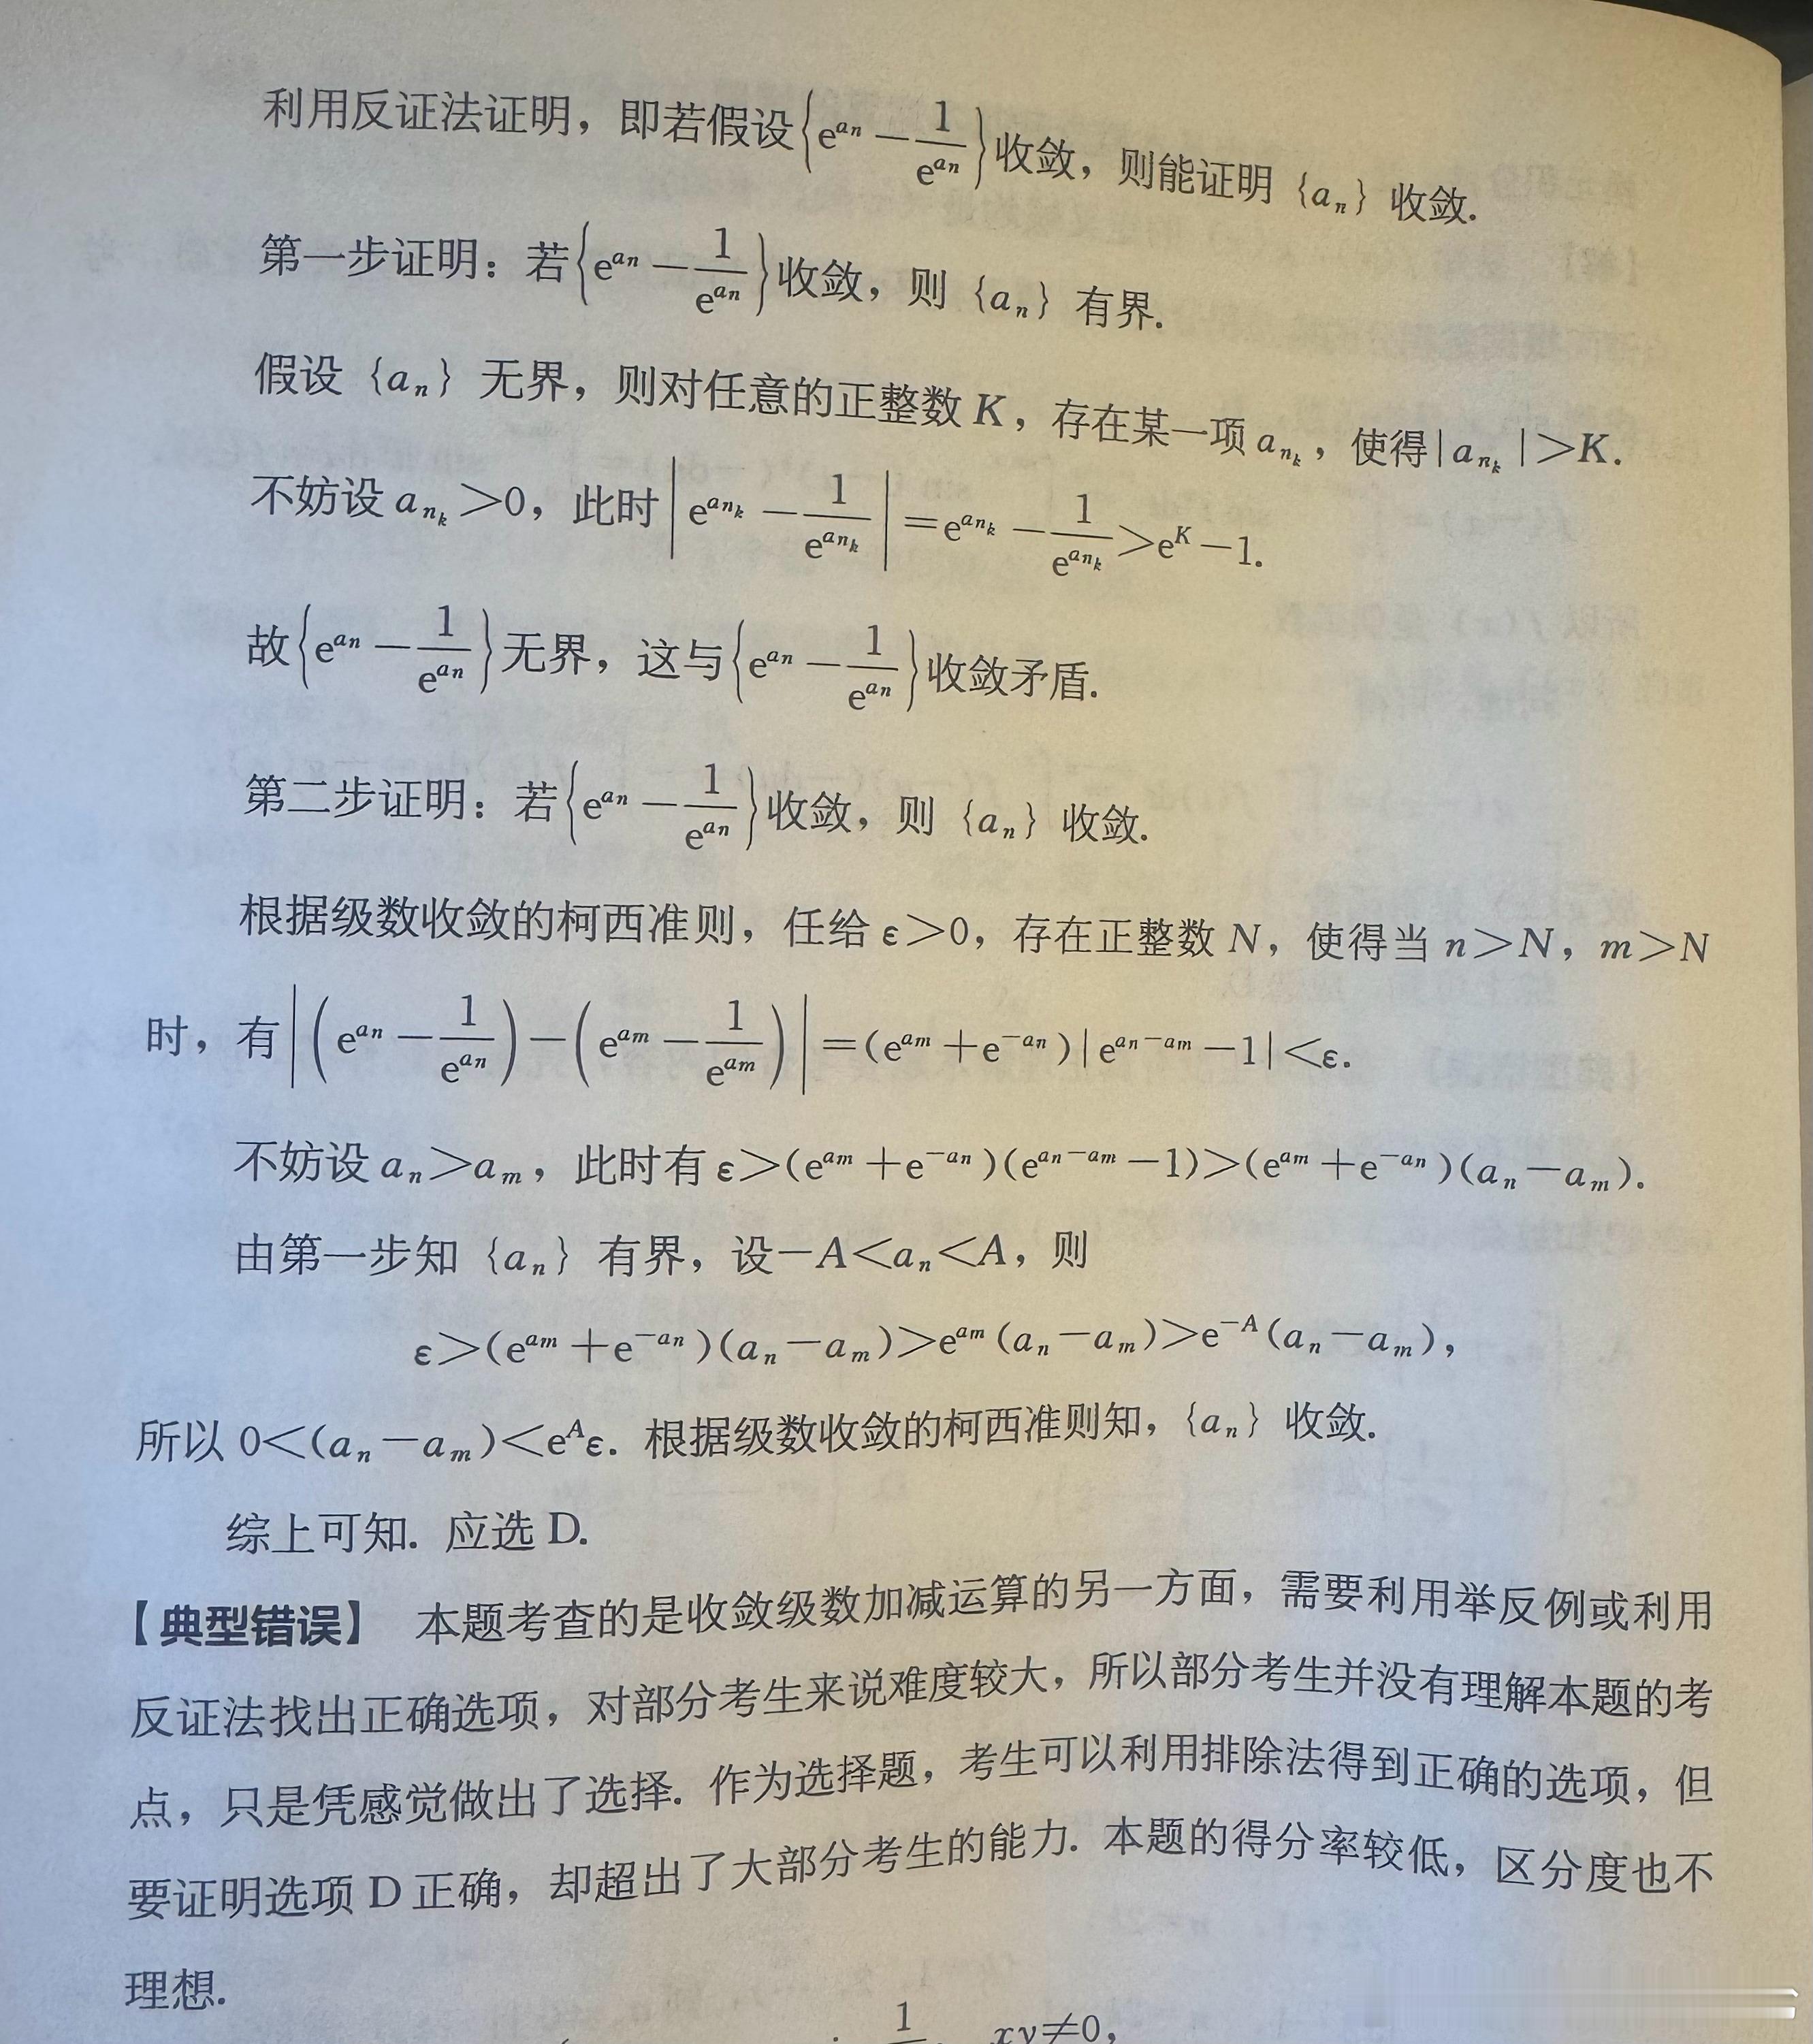 利用反证法证明，即若假设{e^{a_n} − 1/e^{a_n}}收敛，则能证明 {a_n} 收敛.
第一步证明：若{e^{a_n} − 1/e^{a_n}}收敛，则 {a_n} 有界.
假设 {a_n} 无界，则对任意的正整数 K，存在某一项 a_{n_k}，使得|a_{n_k}|>K.
不妨设 a_{n_k}>0，此时|e^{a_{n_k}} − 1/e^{a_{n_k}}|=e^{a_{n_k}} − 1/e^{a_{n_k}}>e^K−1.
故{e^{a_n} − 1/e^{a_n}}无界，这与{e^{a_n} − 1/e^{a_n}}收敛矛盾.
第二步证明：若{e^{a_n} − 1/e^{a_n}}收敛，则 {a_n} 收敛.
根据级数收敛的柯西准则，任给 ε>0，存在正整数 N，使得当 n>N，m>N
时，有|(e^{a_n} − 1/e^{a_n})−(e^{a_m} − 1/e^{a_m})|=(e^{a_m}+e^{−a_n})|e^{a_n−a_m}−1|<ε.
不妨设 a_n>a_m，此时有 ε>(e^{a_m}+e^{−a_n})(e^{a_n−a_m}−1)>(e^{a_m}+e^{−a_n})(a_n−a_m).
由第一步知 {a_n} 有界，设−A<a_n<A，则
ε>(e^{a_m}+e^{−a_n})(a_n−a_m)>e^{a_m}(a_n−a_m)>e^{−A}(a_n−a_m)，
所以 0<(a_n−a_m)<e^Aε. 根据级数收敛的柯西准则知，{a_n} 收敛.
综上可知. 应选 D.
【典型错误】 本题考查的是收敛级数加减运算的另一方面，需要利用举反例或利用
反证法找出正确选项，对部分考生来说难度较大，所以部分考生并没有理解本题的考
点，只是凭感觉做出了选择. 作为选择题，考生可以利用排除法得到正确的选项，但
要证明选项 D 正确，却超出了大部分考生的能力. 本题的得分率较低，区分度也不
理想.
1 xy≠0，